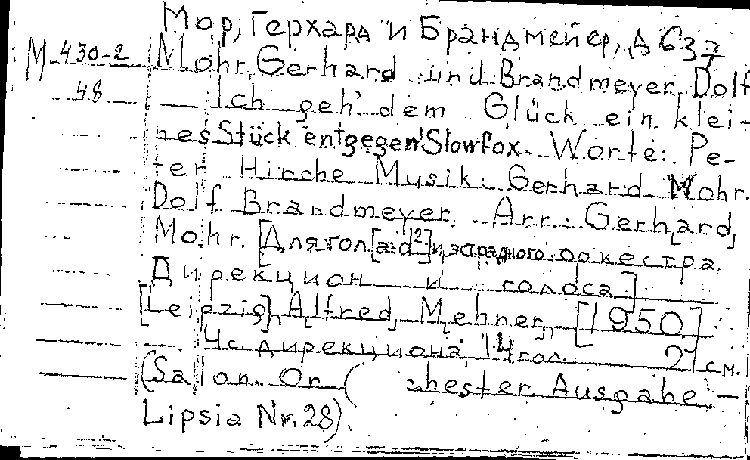 Мор, Герхард и Брандмейер, Д 637
М 430-2 Mohr, Gerhard und Brandmeyer, Dolf
48 Ich geh' dem Glück ein klei-
nes Stück entgegen! Slowfox. Worte: Pe-
ter Hirche Musik: Gerhard Mohr.
Dolf Brandmeyer. Arr.: Gerhard
Mohr. [Для гол[a-d²] и эстрадного оркестра.
Дирекцион и голоса]
[Leipzig], Alfred Mehner, [1950]
4 с. дирекциона, 14 гол. 27 см.
(Salon-Or chester Ausgabe –
Lipsia Nr. 28)